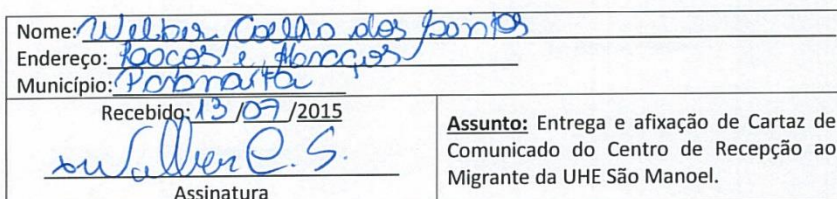 Nome: Welber Coelho dos Santos
Endereço:
Município: Paranaíta
Recebido: 13 /07 /2015
Assinatura
Assunto: Entrega e afixação de Cartaz de
Comunicado do Centro de Recepção ao
Migrante da UHE São Manoel.